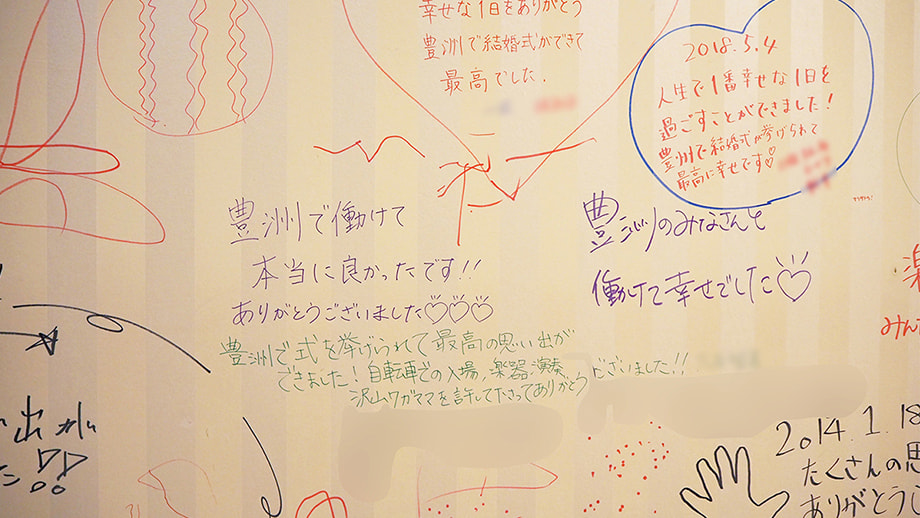 幸せな1日をありがとう
豊洲で結婚式ができて
最高でした.
2018.5.4
人生で1番幸せな1日を
過ごすことができました!
豊洲で結婚式が挙げられて
最高に幸せです♡
豊洲で働けて
本当に良かったです!!
ありがとうございました♡♡♡
豊洲のみなさんと
働けて幸せでした♡
豊洲で式を挙げられて最高の思い出が
できました!自転車での入場、楽器演奏、
沢山ワガママを許して下さってありがとうございました!!
楽
みんな
出が
た!!
2014.1.18
たくさんの思
ありがとうご